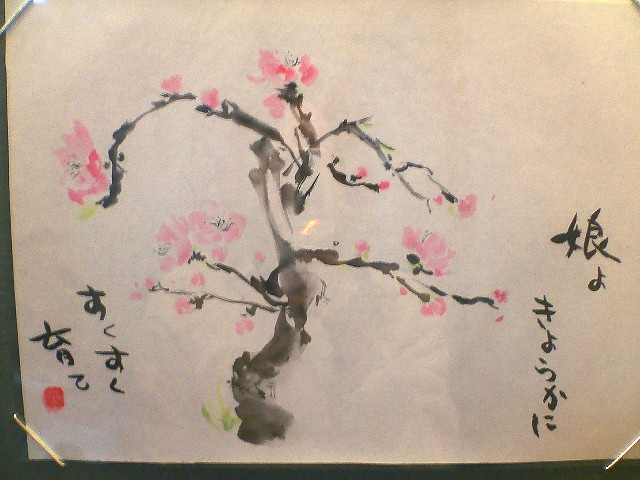 娘よ
きよらかに
すくすく
育て